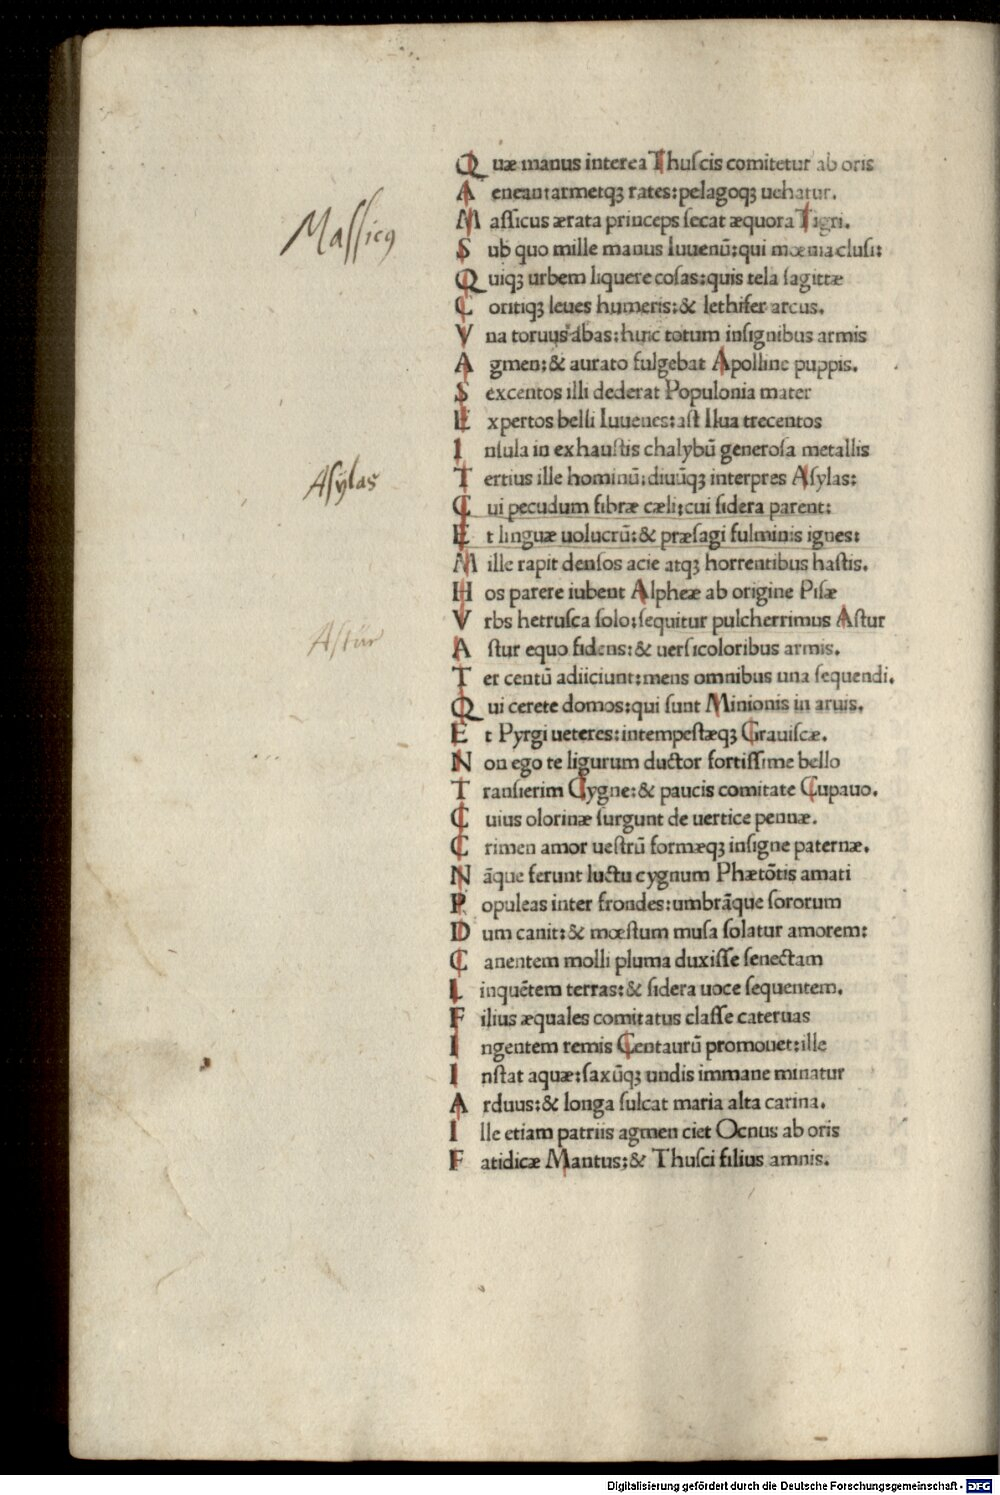 Quæ manus interea Thuſcis comitetur ab oris
Aeneantarmetqꝫ rates: pelagoqꝫ uehatur.
Maſſicus ærata princeps ſecat æquora Tigri.
Maſſicꝰ
Sub quo mille manus Iuuenū: qui mœnia cluſi:
Quiqꝫ urbem liquere coſas: quis tela ſagittæ
Coritiqꝫ leues humeris: & lethifer arcus.
Vna toruus abas: huic totum inſignibus armis
Agmen: & aurato fulgebat Apolline puppis.
Sexcentos illi dederat Populonia mater
Expertos belli Iuuenes: aſt Ilua trecentos
Inſula in exhauſtis chalybū generoſa metallis
Tertius ille hominū: diuūqꝫ interpres Aſylas:
Aſÿlas
Cui pecudum fibræ cæli: cui ſidera parent:
Et linguæ uolucrū: & præſagi fulminis ignes:
Mille rapit denſos acie atqꝫ horrentibus haſtis.
Hos parere iubent Alpheæ ab origine Piſæ
Vrbs hetruſca ſolo: ſequitur pulcherrimus Aſtur
Aſtür
Aſtur equo fidens: & uerſicoloribus armis.
Ter centū adiiciunt: mens omnibus una ſequendi.
Qui cerete domos: qui ſunt Minionis in aruis.
Et Pyrgi ueteres: intempeſtæqꝫ Grauiſcæ.
Non ego te ligurum ductor fortiſſime bello
Tranſierim Cygne: & paucis comitate Cupauo.
Cuius olorinæ ſurgunt de uertice pennæ.
Crimen amor ueſtrū formæqꝫ inſigne paternæ.
Nāque ferunt luctu cygnum Phætōtis amati
Populeas inter frondes: umbrāque ſororum
Dum canit: & mœſtum muſa ſolatur amorem:
Canentem molli pluma duxiſſe ſenectam
Linquētem terras: & ſidera uoce ſequentem.
Filius æquales comitatus claſſe cateruas
Ingentem remis Centaurū promouet: ille
Inſtat aquæ: ſaxūqꝫ undis immane minatur
Arduus: & longa ſulcat maria alta carina.
Ille etiam patriis agmen ciet Ocnus ab oris
Fatidicæ Mantus: & Thuſci filius amnis.
Digitalisierung gefördert durch die Deutsche Forschungsgemeinschaft - DFG